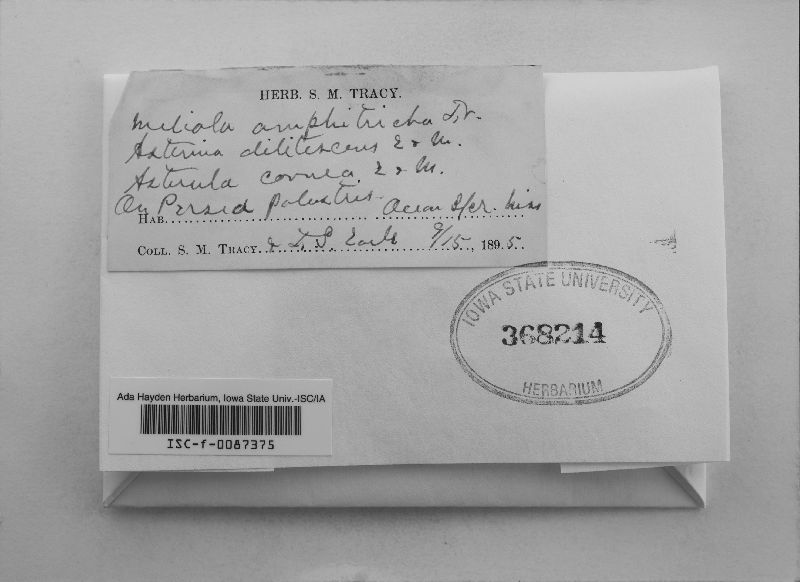 HERB. S. M. TRACY.
Meliola amphitricha Fr.
Asterina delitescens E & M.
Asterula cornea. E & M.
On Persea palustris.
HAB. Ocean Spr. Miss
COLL. S. M. TRACY. & F. S. Earle 9/15, 1895.
IOWA STATE UNIVERSITY
368214
HERBARIUM
Ada Hayden Herbarium, Iowa State Univ.-ISC/IA
ISC-f-0087375